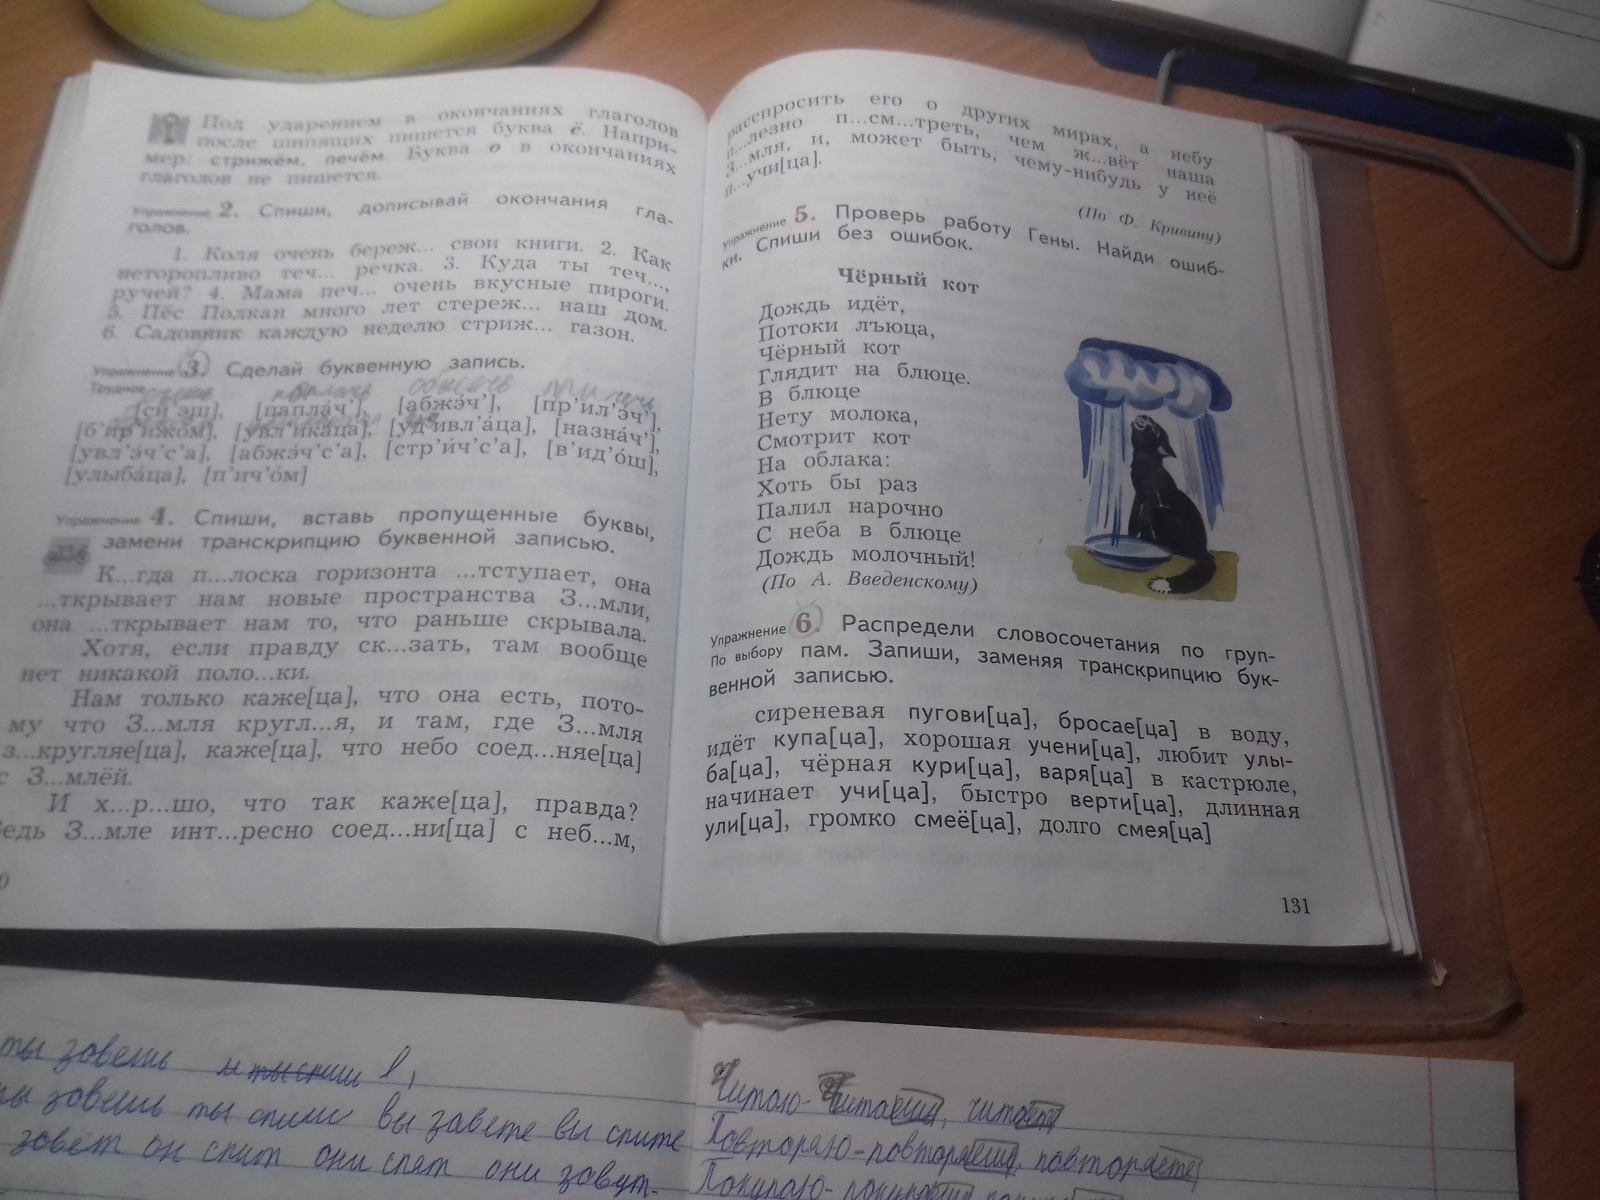 Под ударением в окончаниях глаголов
после шипящих пишется буква ё. Напри-
мер: стрижём, печём. Буква о в окончаниях
глаголов не пишется.
Упражнение 2. Спиши, дописывай окончания гла-
голов.
1. Коля очень береж... свои книги. 2. Как
неторопливо теч... речка. 3. Куда ты теч...,
ручей? 4. Мама печ... очень вкусные пироги.
5. Пёс Полкан много лет стереж... наш дом.
6. Садовник каждую неделю стриж... газон.
Упражнение 3. Сделай буквенную запись.
Трудное
[си́эш], [папла́ч’], [абжэ́ч’], [пр’ил’э́ч’],
[б’ир’ижо́м], [увл’ика́ца], [уд’ивл’а́ца], [назна́ч’],
[увл’э́ч’с’а], [абжэ́ч’с’а], [стр’и́ч’с’а], [в’ид’о́ш],
[улыба́ца], [п’ич’о́м]
Упражнение 4. Спиши, вставь пропущенные буквы,
замени транскрипцию буквенной записью.
К...гда п...лоска горизонта ...тступает, она
...ткрывает нам новые пространства З...мли,
она ...ткрывает нам то, что раньше скрывала.
Хотя, если правду ск...зать, там вообще
нет никакой поло...ки.
Нам только каже[ца], что она есть, пото-
му что З...мля кругл...я, и там, где З...мля
з...кругляе[ца], каже[ца], что небо соед...няе[ца]
с З...млёй.
И х...р...шо, что так каже[ца], правда?
Ведь З...мле инт...ресно соед...ни[ца] с неб...м,
0
расспросить его о других мирах, а небу
п...лезно п...см...треть, чем ж...вёт наша
З...мля, и, может быть, чему-нибудь у неё
п...учи[ца].
(По Ф. Кривину)
Упражнение 5. Проверь работу Гены. Найди ошиб-
ки. Спиши без ошибок.
Чёрный кот
Дождь идёт,
Потоки лъюца,
Чёрный кот
Глядит на блюце.
В блюце
Нету молока,
Смотрит кот
На облака:
Хоть бы раз
Палил нарочно
С неба в блюце
Дождь молочный!
(По А. Введенскому)
Упражнение 6. Распредели словосочетания по груп-
По выбору пам. Запиши, заменяя транскрипцию бук-
венной записью.
сиреневая пугови[ца], бросае[ца] в воду,
идёт купа[ца], хорошая учени[ца], любит улы-
ба[ца], чёрная кури[ца], варя[ца] в кастрюле,
начинает учи[ца], быстро верти[ца], длинная
ули[ца], громко смеё[ца], долго смея[ца]
131
ты зовешь
ты зовешь ты спиш вы завете вы спите
зовёт он спит они спят они завут.
Читаю- читаеш, читаете
Повторяю-повторяеш, повторяете
Покупаю-